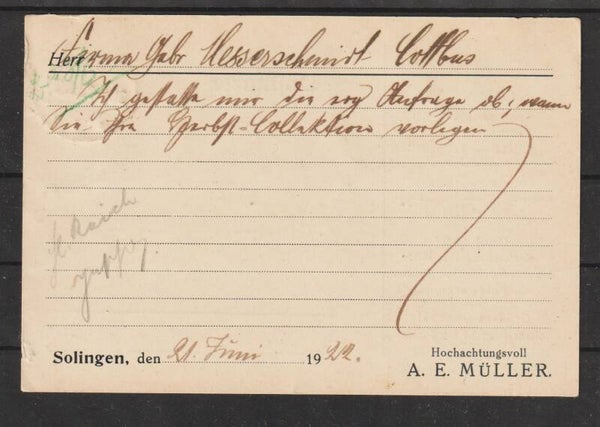 Herr Firma Gebr Messerschmidt Cottbus
Ich gestatte mir die erg Anfrage ob, wann
Sie Ihre Herbst-Collektion vorlegen
Solingen, den 21. Juni 1922.
Hochachtungsvoll
A. E. MÜLLER.